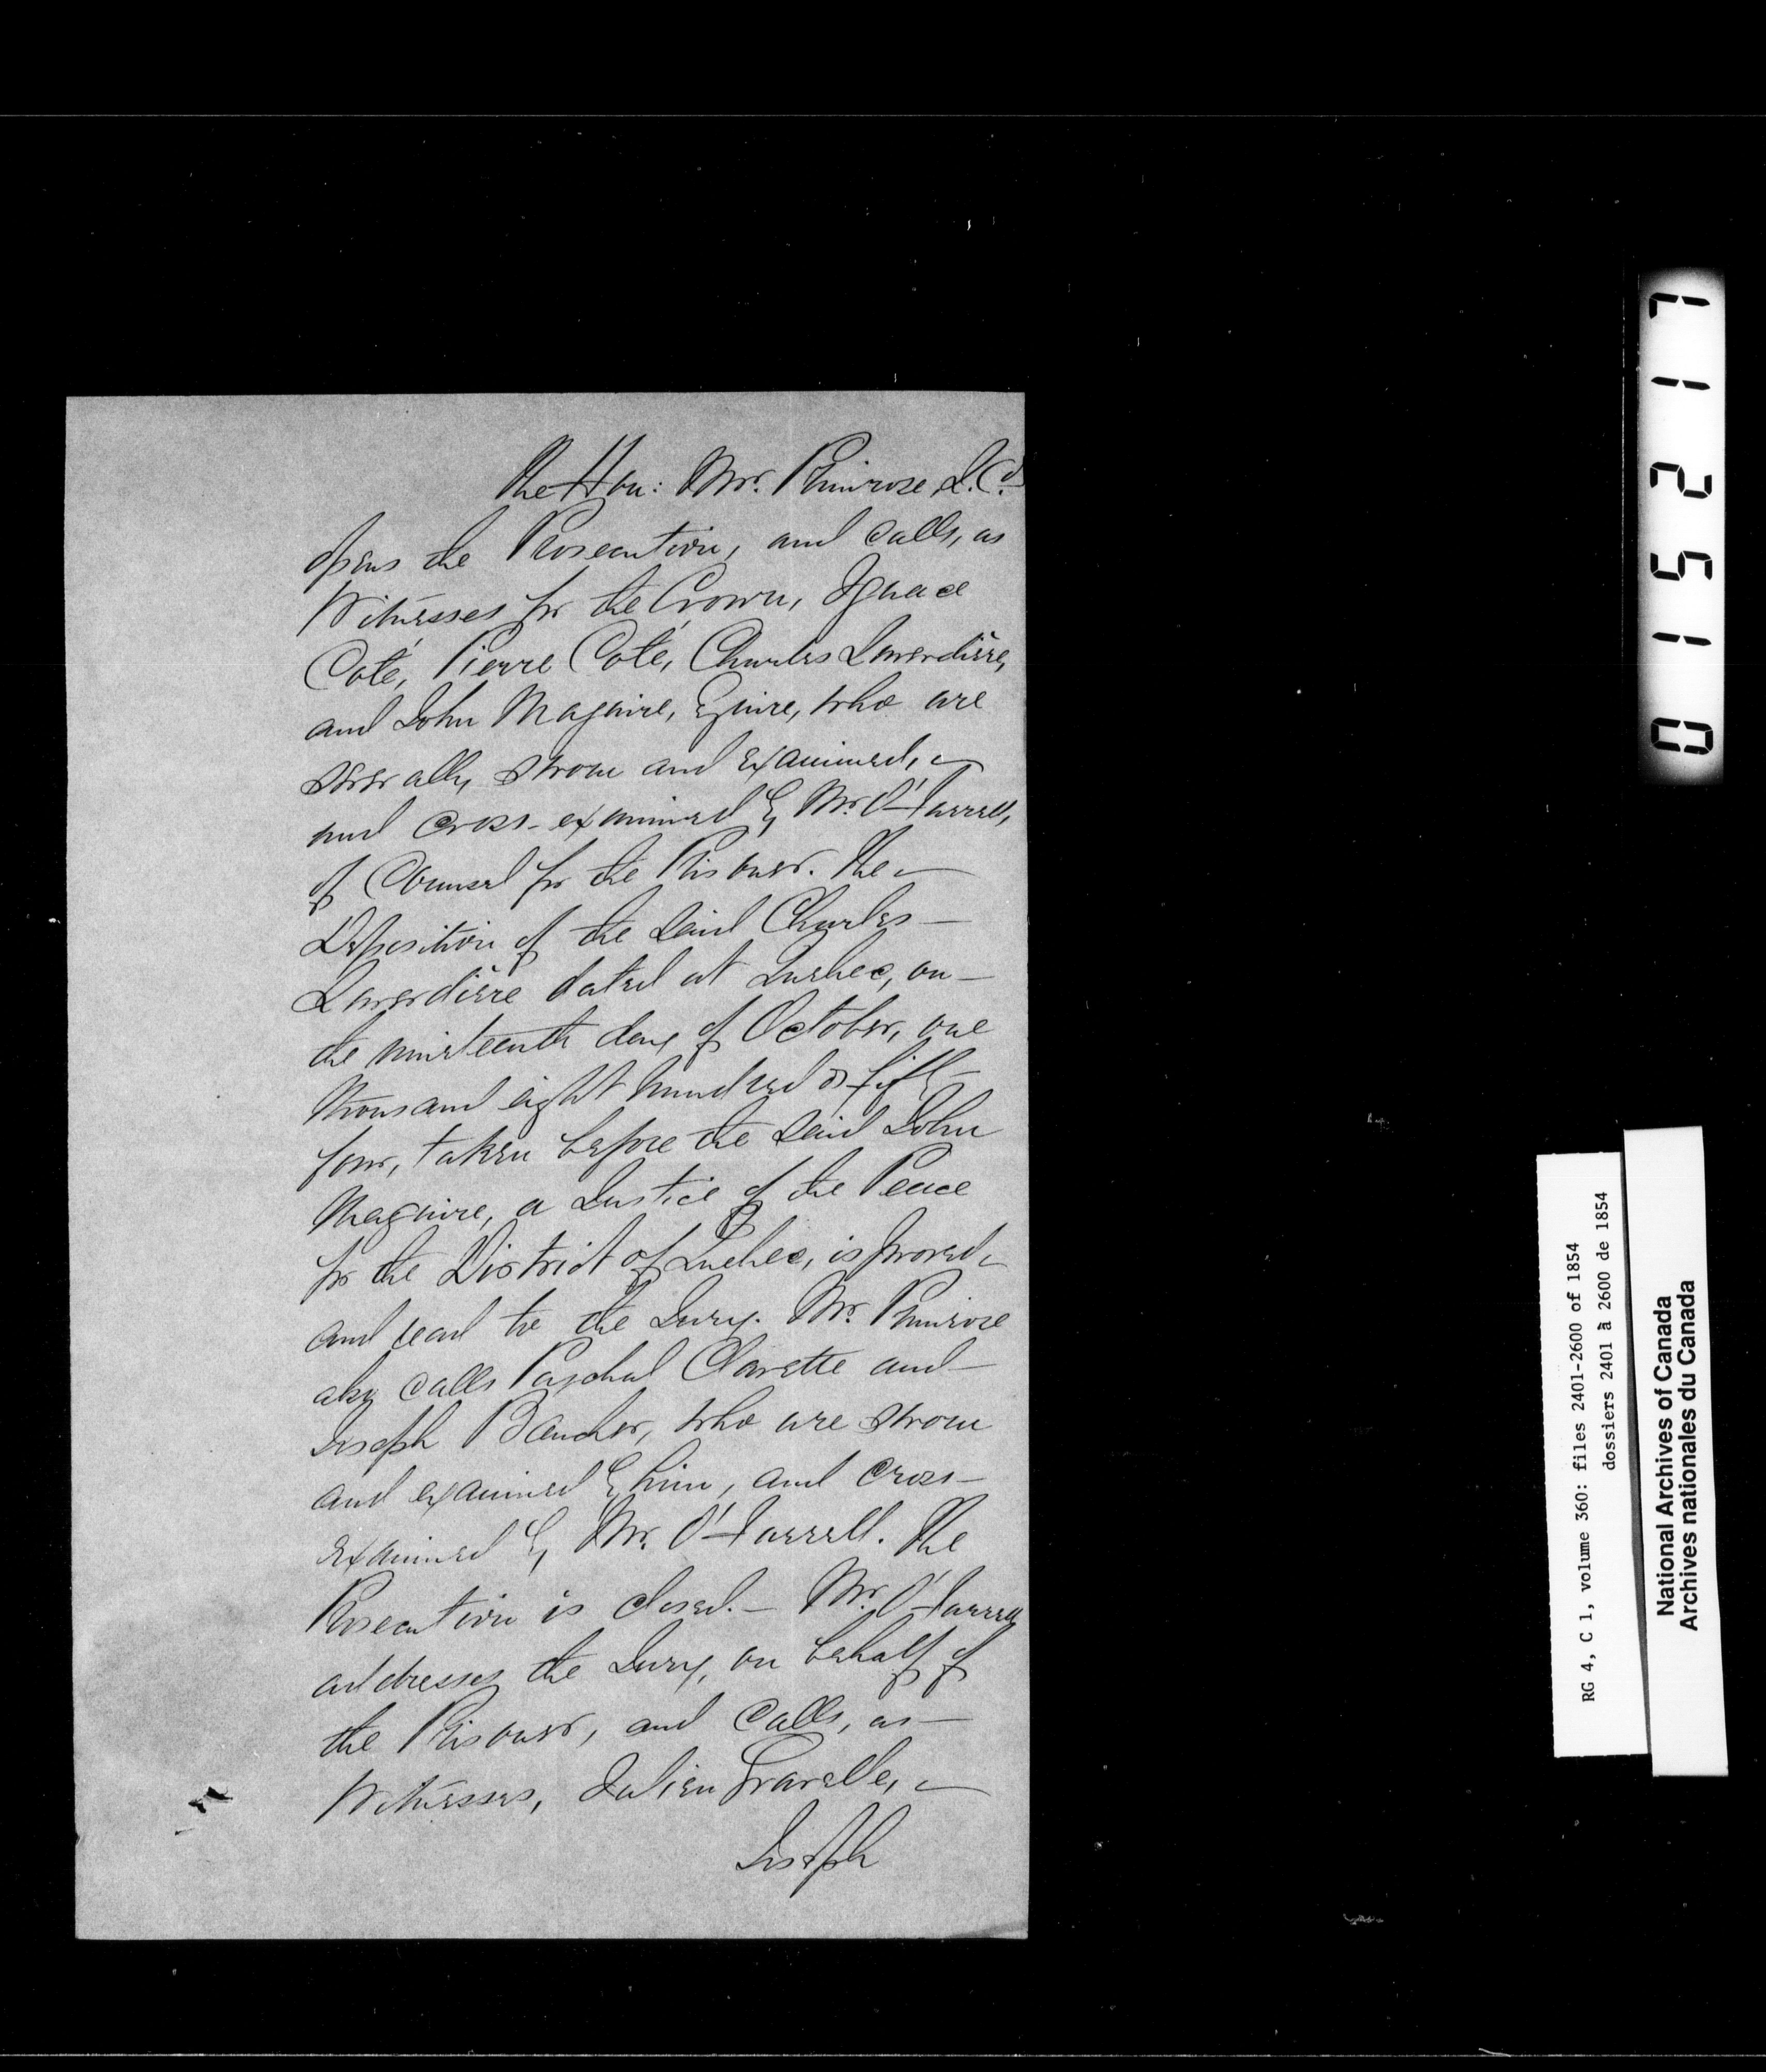 The Hon: Mr. Primrose, Q. C.
opens the Prosecution, and calls, as
Witnesses for the Crown, Ignace
Coté, Pierre Coté, Charles Laverdière,
and John Maguire, Esquire, who are
severally sworn and examined,
and cross-examined by Mr. O'Farrell,
of Counsel for the Prisoner. The
Deposition of the said Charles —
Laverdière dated at Quebec, on —
the nineteenth day of October, one
thousand eight hundred & fifty
four, taken before the said John
Maguire, a Justice of the Peace
for the District of Quebec, is proved
and read to the Jury. Mr. Primrose
also calls Paschal Clavette and —
Joseph Baucher, who are sworn
and examined by him, and cross-
examined by Mr. O'Farrell. The
Prosecution is closed. — Mr. O'Farrell
addresses the Jury, on behalf of
the Prisoner, and calls, as —
Witnesses, Julien Gravelle,
Joseph
015217
RG 4, C 1, volume 360: files 2401-2600 of 1854
dossiers 2401 à 2600 de 1854
National Archives of Canada
Archives nationales du Canada